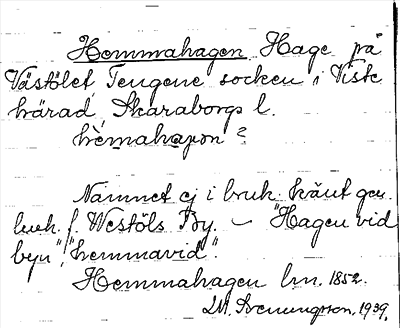 Hemmahagen Hage på
Västölet Tengene socken i Viste
härad, Skaraborgs l.
hèmahaƞon?
Namnet ej i bruk. Känt gen.
lnk. f. Westöls By. – "Hagen vid
byn", "hemmavid".
Hemmahagen lm. 1852.
I.M. Svenungsson. 1939.